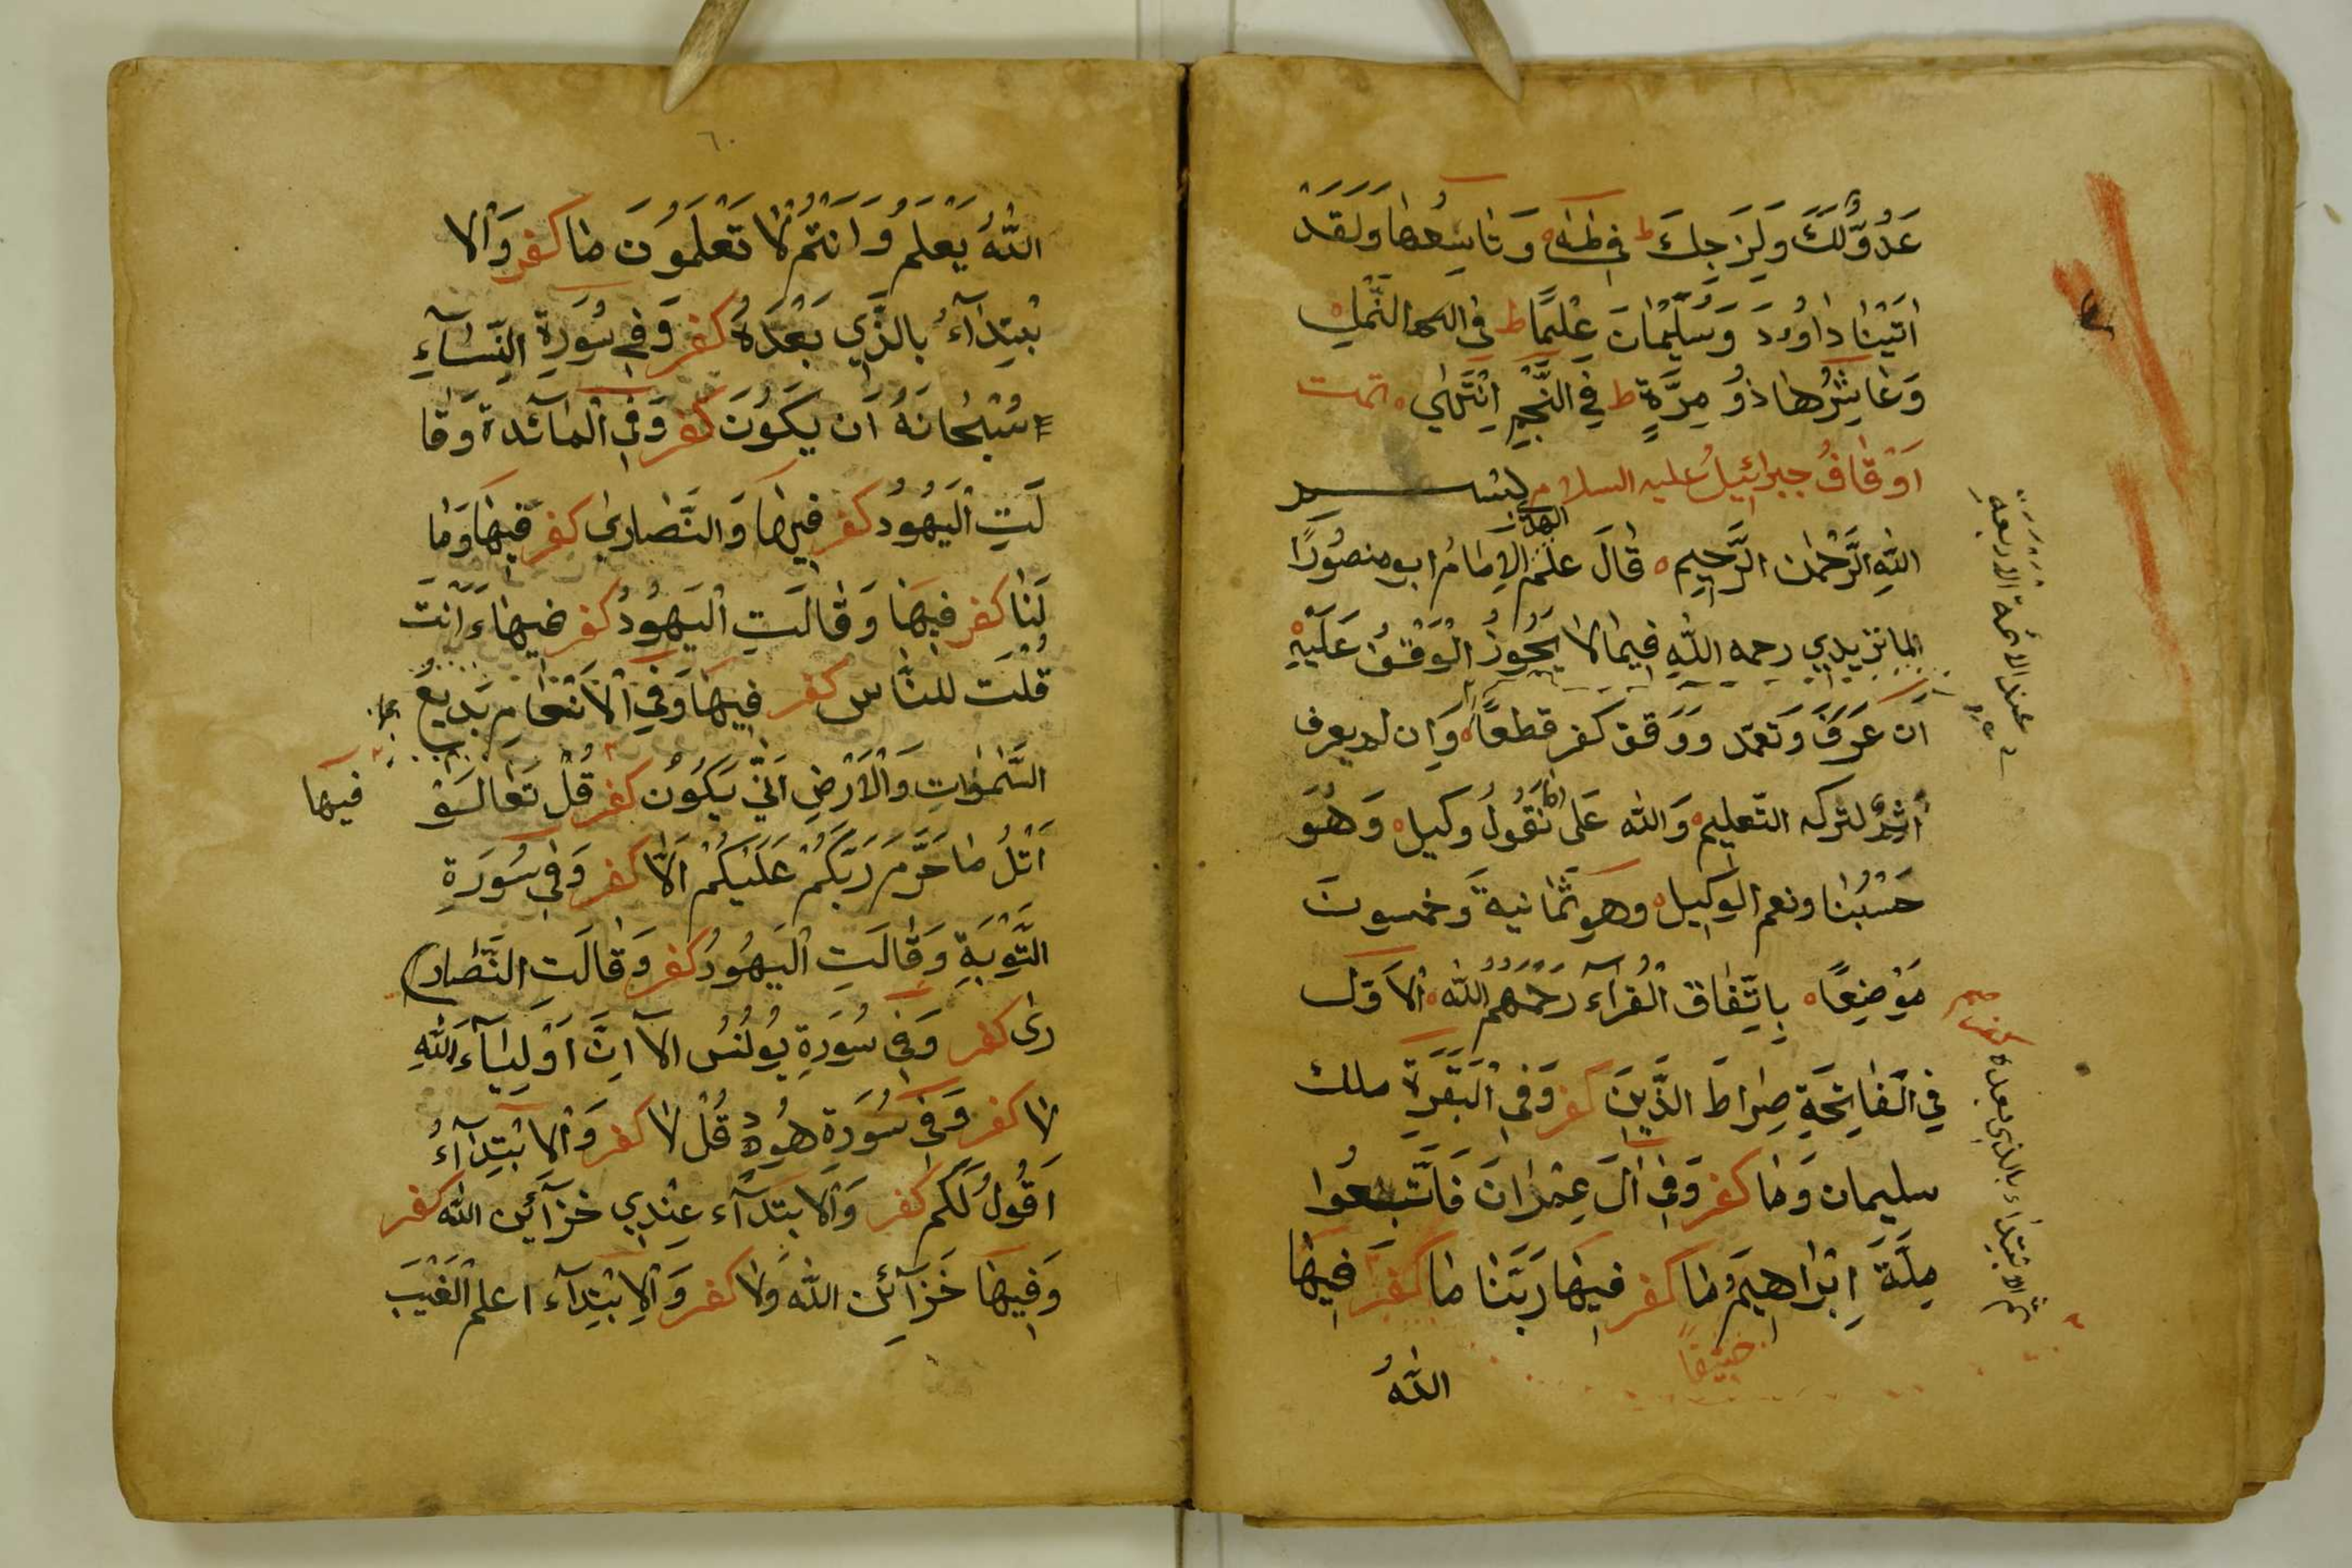 عَدُوٌّ لَكَ وَلِزَوْجِكَ ط فِي طٰهٰ ۰ وَتَاسِعُهَا وَلَقَدْ
اٰتَيْنَا دَاوُدَ وَسُلَيْمَانَ عِلْمًا ط في النَّمْلِ
وَعَاشِرُهَا ذُو مِرَّةٍ ط فِي النَّجْمِ اِنْتَهٰى ۰ تمت
اَوْقَافُ جبرائيلُ عليه السلام بسم
اللهِ الرَّحْمٰن الرَّحِيم ۰ قَالَ علم الهدى الاِمَامُ ابو منصُورًا
لماتزيدي رحمه اللهِ فِيمَا لا يَجُوزُ الْوَقْفُ عَلَيْهِ
اَن عَرَفَ وَتَعَمّد وَوَقف كفر قطعًا ۰ وَاِن لم يعرف
اَثِمَ لتركه التّعليم ۰ وَالله عَلى مَا نَقُولُ وكيل ۰ وَهُوَ
حَسْبُنَا ونعم الوَكِيل ۰ وهو ثَمَانيةَ وَخمسونَ
مَوْضِعًا ۰ بِاتِّفَاق الْقُرآء رَحْمَهُمُ اللهُ ۰ الاَوّل
فِي الْفَاتِحَةِ صِرَاطَ الَّذِينَ كفر وَفِي الْبَقَرَةِ ملك
سليمان وَمَا كفر وَفِي اٰلَ عِمْرَانَ فَاتَّبِعُوا
مِلَّةَ اِبْرَاهِيمَ وَمَا كفر فيهَا رَبَّنَا مَا كفر فِيهَا
حنيفا
اللهُ
عند الائمة الاربعة
ثم الابتداء بالذي بعده
٦٠
اللهُ يَعْلَمُ وَاَنْتُمْ لَا تَعْلَمُونَ مَا كفر وَالا
بْتِدَآءُ بالَّذِي بَعْدَهُ كفر وَفِي سُورَةِ النِّسَآءِ
سُبْحَانَهُ اَن يَكُونَ كفر وَفِي الْمَآئدة وَقَا
لَتِ الْيَهُودُ كفر فيهَا وَالنَّصَارى كفر فيهَا وَمَا
لَنَا كفر فيهَا وَقَالَتِ الْيَهُودُ كفر فيهَا ءَاَنْتَ
قُلْتَ للنَّاس كفر فِيهَا وَفِي الْاَنْعَامِ بَدِيعُ
السَّمٰوَاتِ وَالْاَرْضِ اَنّٰى يَكُونُ كفر قُلْ تَعَالَوْ فيها
اَتْلُ مَا حَرَّمَ رَبُّكُمْ عَلَيْكُمْ اَلَّا كفر وَفِي سُورَةِ
التَّوْبَةِ وَقَالَتِ الْيَهُودُ كفر وَقَالَتِ النَّصَا
رٰى كفر وَفِي سُورَةِ يُولُنُس اَلَآ اِنَّ اَوْلِيَآءَ اللهِ
لَا كفر وَفِي سُورَةِ هُودٍ قُلْ لَا كفر وَالابْتِدَآءُ
اَقُولُ لَكُم كفر وَالابتدَآء عِنْدِي خزَآئِن الله كفر
وَفِيهَا خَزَآئِن الله وَلَا كفر وَالاِبْتِدَآء اعلم الْغَيْبَ